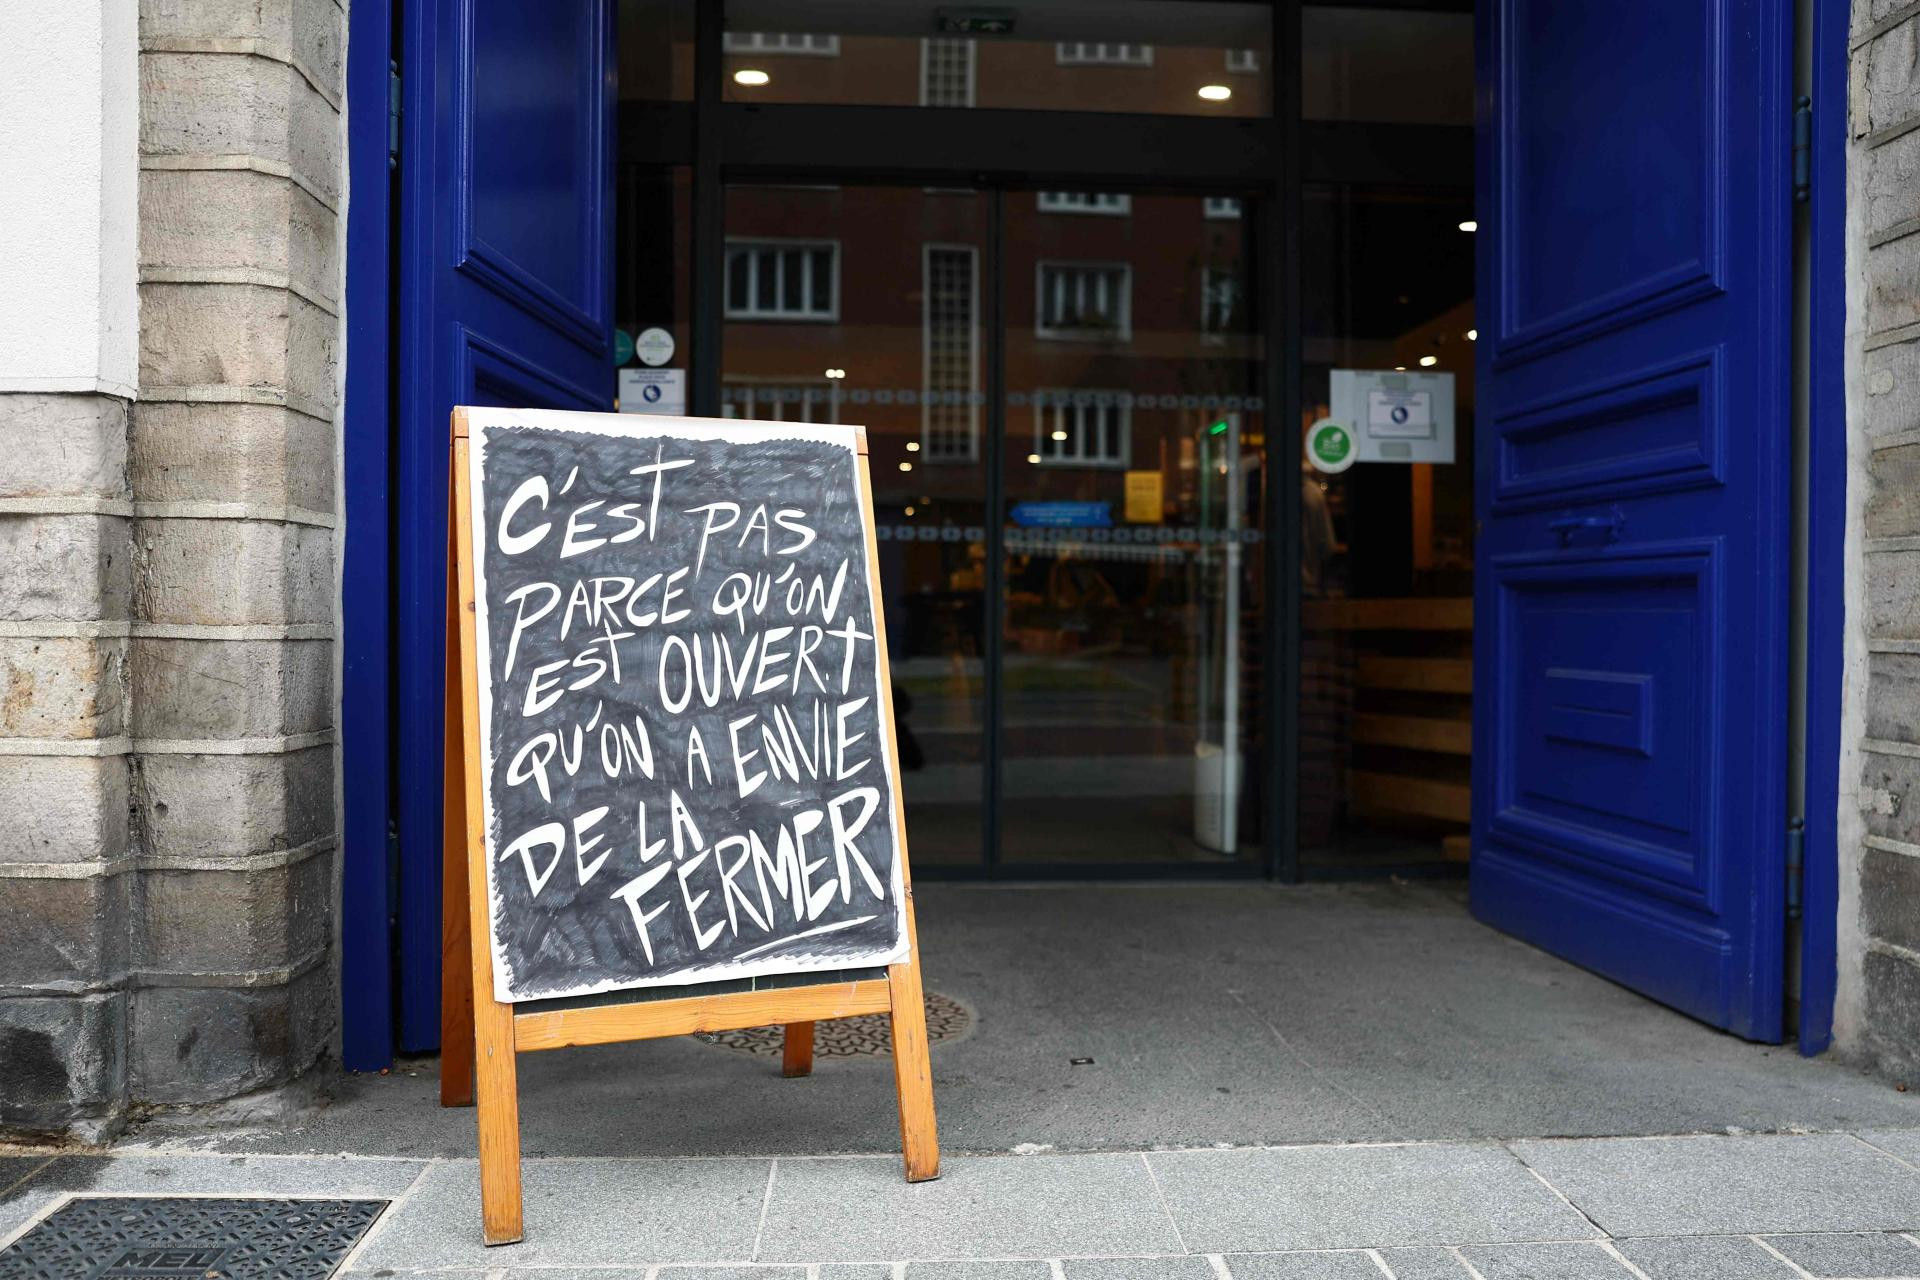 C'EST PAS
PARCE QU'ON
EST OUVERT
QU'ON A ENVIE
DE LA
FERMER
MEL